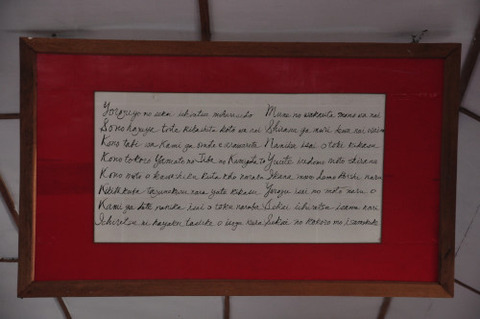 Yorozuyo no sekai ichiretsu miharasedo Mune no wakarita mono wa nai
Sono hazuya toite kikashita koto wa nai Shiranu ga muri dewa nai
Kono tabi wa Kami ga omote e arawarete Nanika isai o toki kikasu
Kono tokoro Yamato no Jiba no Kamigata to Yuute iredomo moto shiranu
Kono moto o kuwashiku kiita koto naraba Ikana mono demo koishi naru
Kikitakuba tazunekuru nara yute kikasu Yorozu isai no moto naru o
Kami ga dete nanika isai o toku naraba Sekai ichiretsu isamu nari
Ichiretsu ni hayaku tasuke o isogu kara Sekai no kokoro mo isamekake